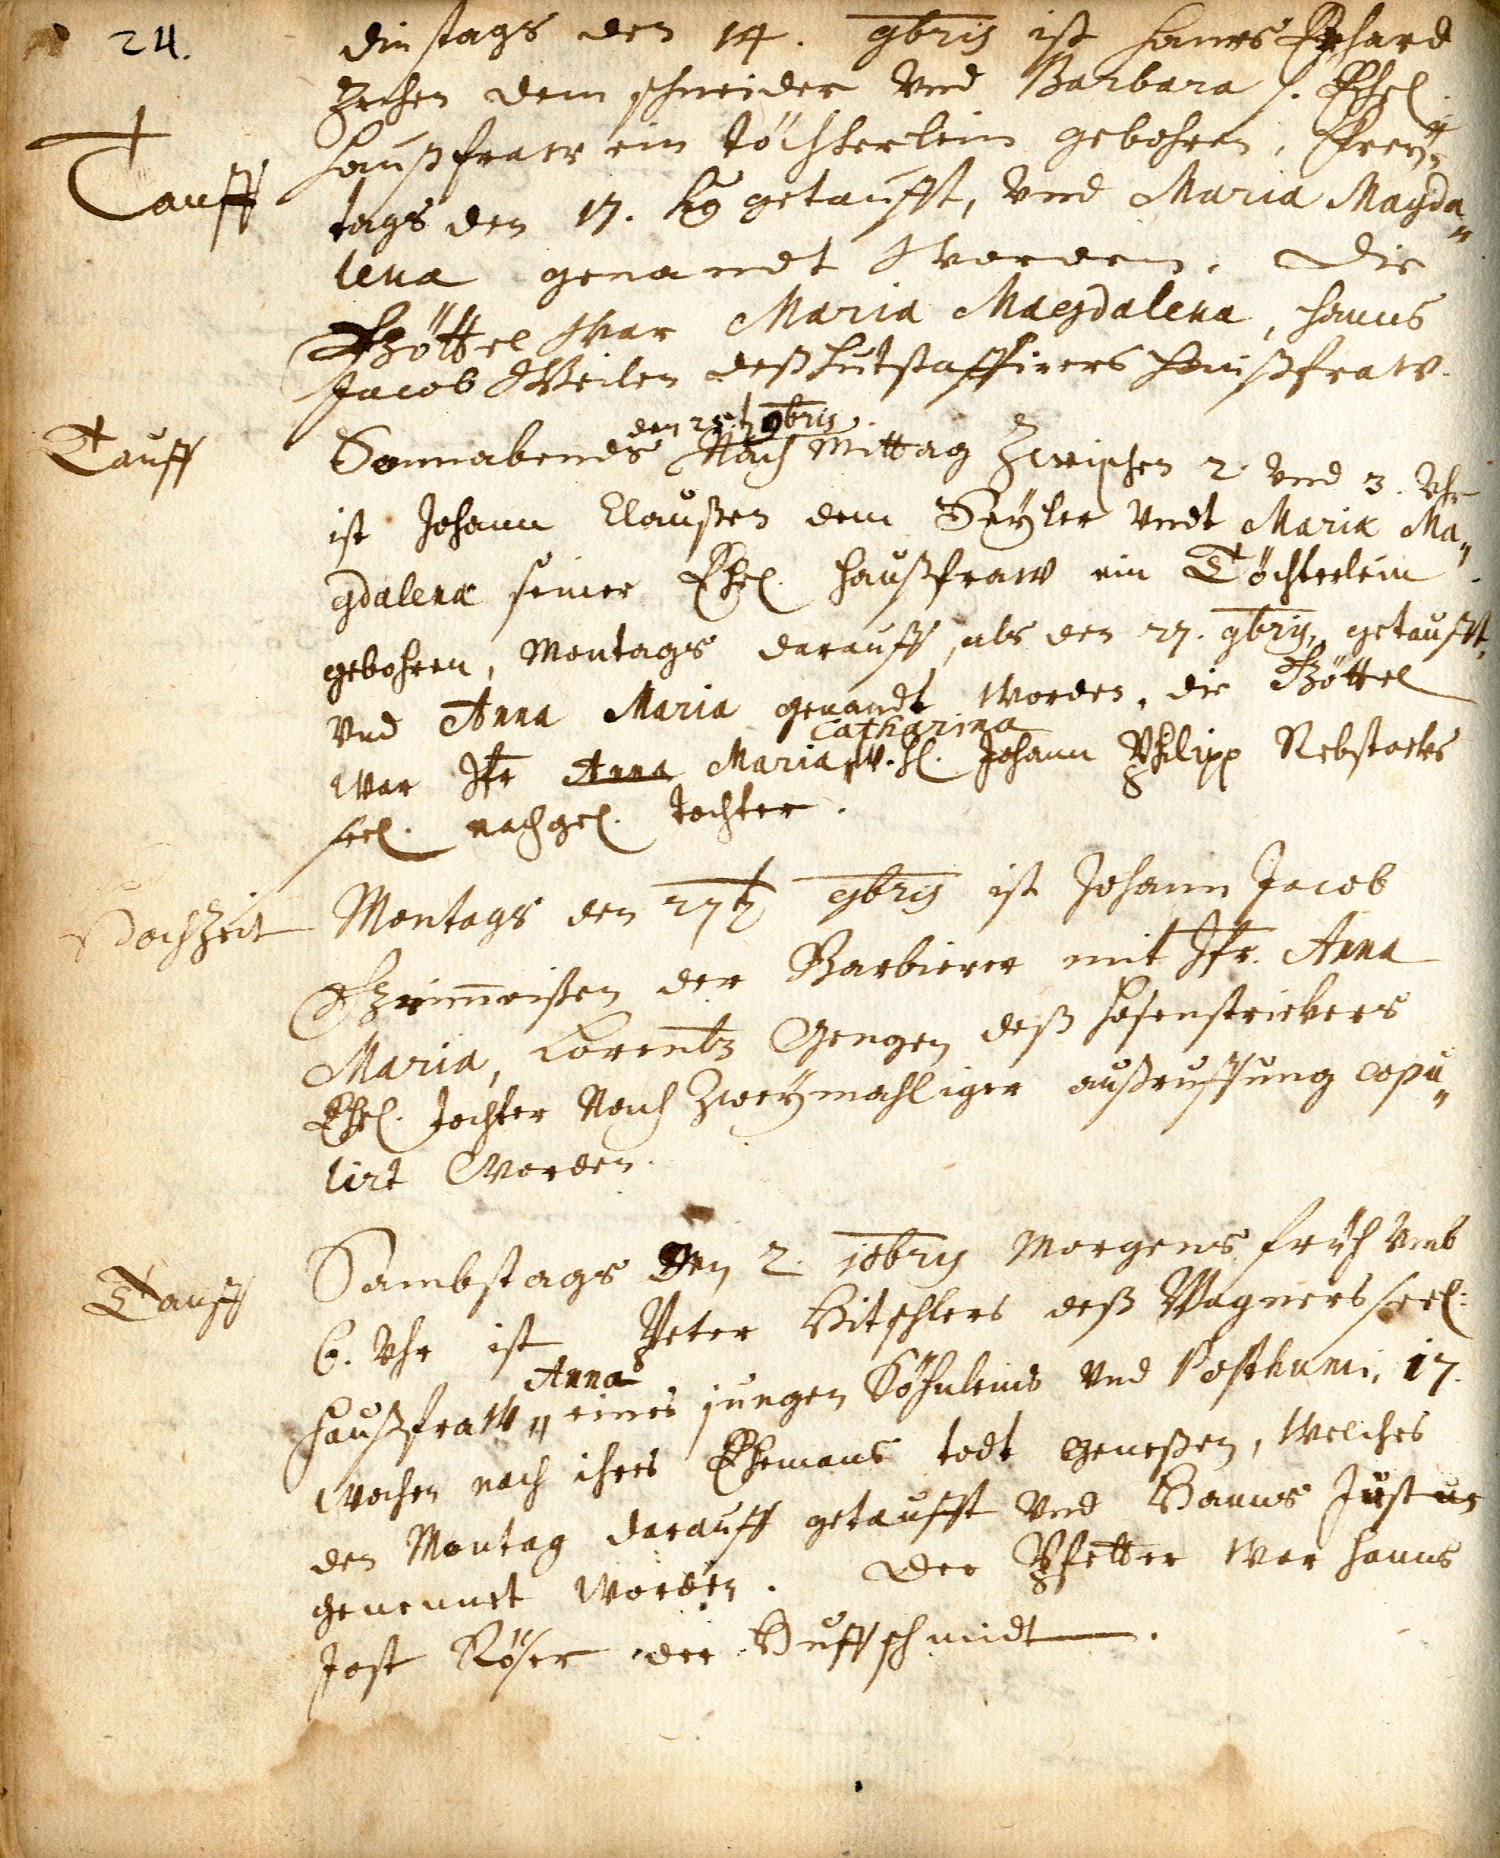 24.
Dinstags den 14. 9bris ist Hanns Erhard
Zechen dem schneider vnd Barbara s. Ehel.
Taufft
haußfraw ein töchterlein gebohren, Frey„
tags den 17. getaufft, vnd Maria Magda„
lena genandt worden. Die
Göttel war Maria Magdalena, Hanns
Jacob Weilen deß hutstaffirers Haußfraw.
den 25t 9bris
Tauff
Sonnabends Nach Mittag Zwischen 2 vnd 3. Vhr
ist Johann Claußen dem Seyler vndt Maria Ma„
gdalena seiner Ehel. haußfraw ein Töchterlein
gebohren, Montags darauff, als den 27. 9bris, getaufft,
vnd Anna Maria genandt worden, die Göttel
Catharina
war Jfr Anna Maria, w. H. Johann Philipp Rebstocks
seel. nachgel. tochter.
Hochzeit
Montags den 27t 9bris ist Johann Jacob
der Barbierer mit Jfr. Anna
Maria, Lorentz Gengen deß hosenstrickers
Ehel. tochter Nach Zweymahliger außruffung copu„
lirt worden.
Tauff
Sambstags den 2. 10bris Morgens früh vmb
6. Vhr ist Peter Bitschlers deß Wagners seel:
Anna
haußfraw „ eines jungen Söhnleins vnd Posthumi, 17.
wochen nach ihres Ehemans todt genesen, welches
den Montag darauff getaufft vnd Hanns Justus
genennet worden. Der Pfetter war hanns
Jost Röser der Huffschmidt.